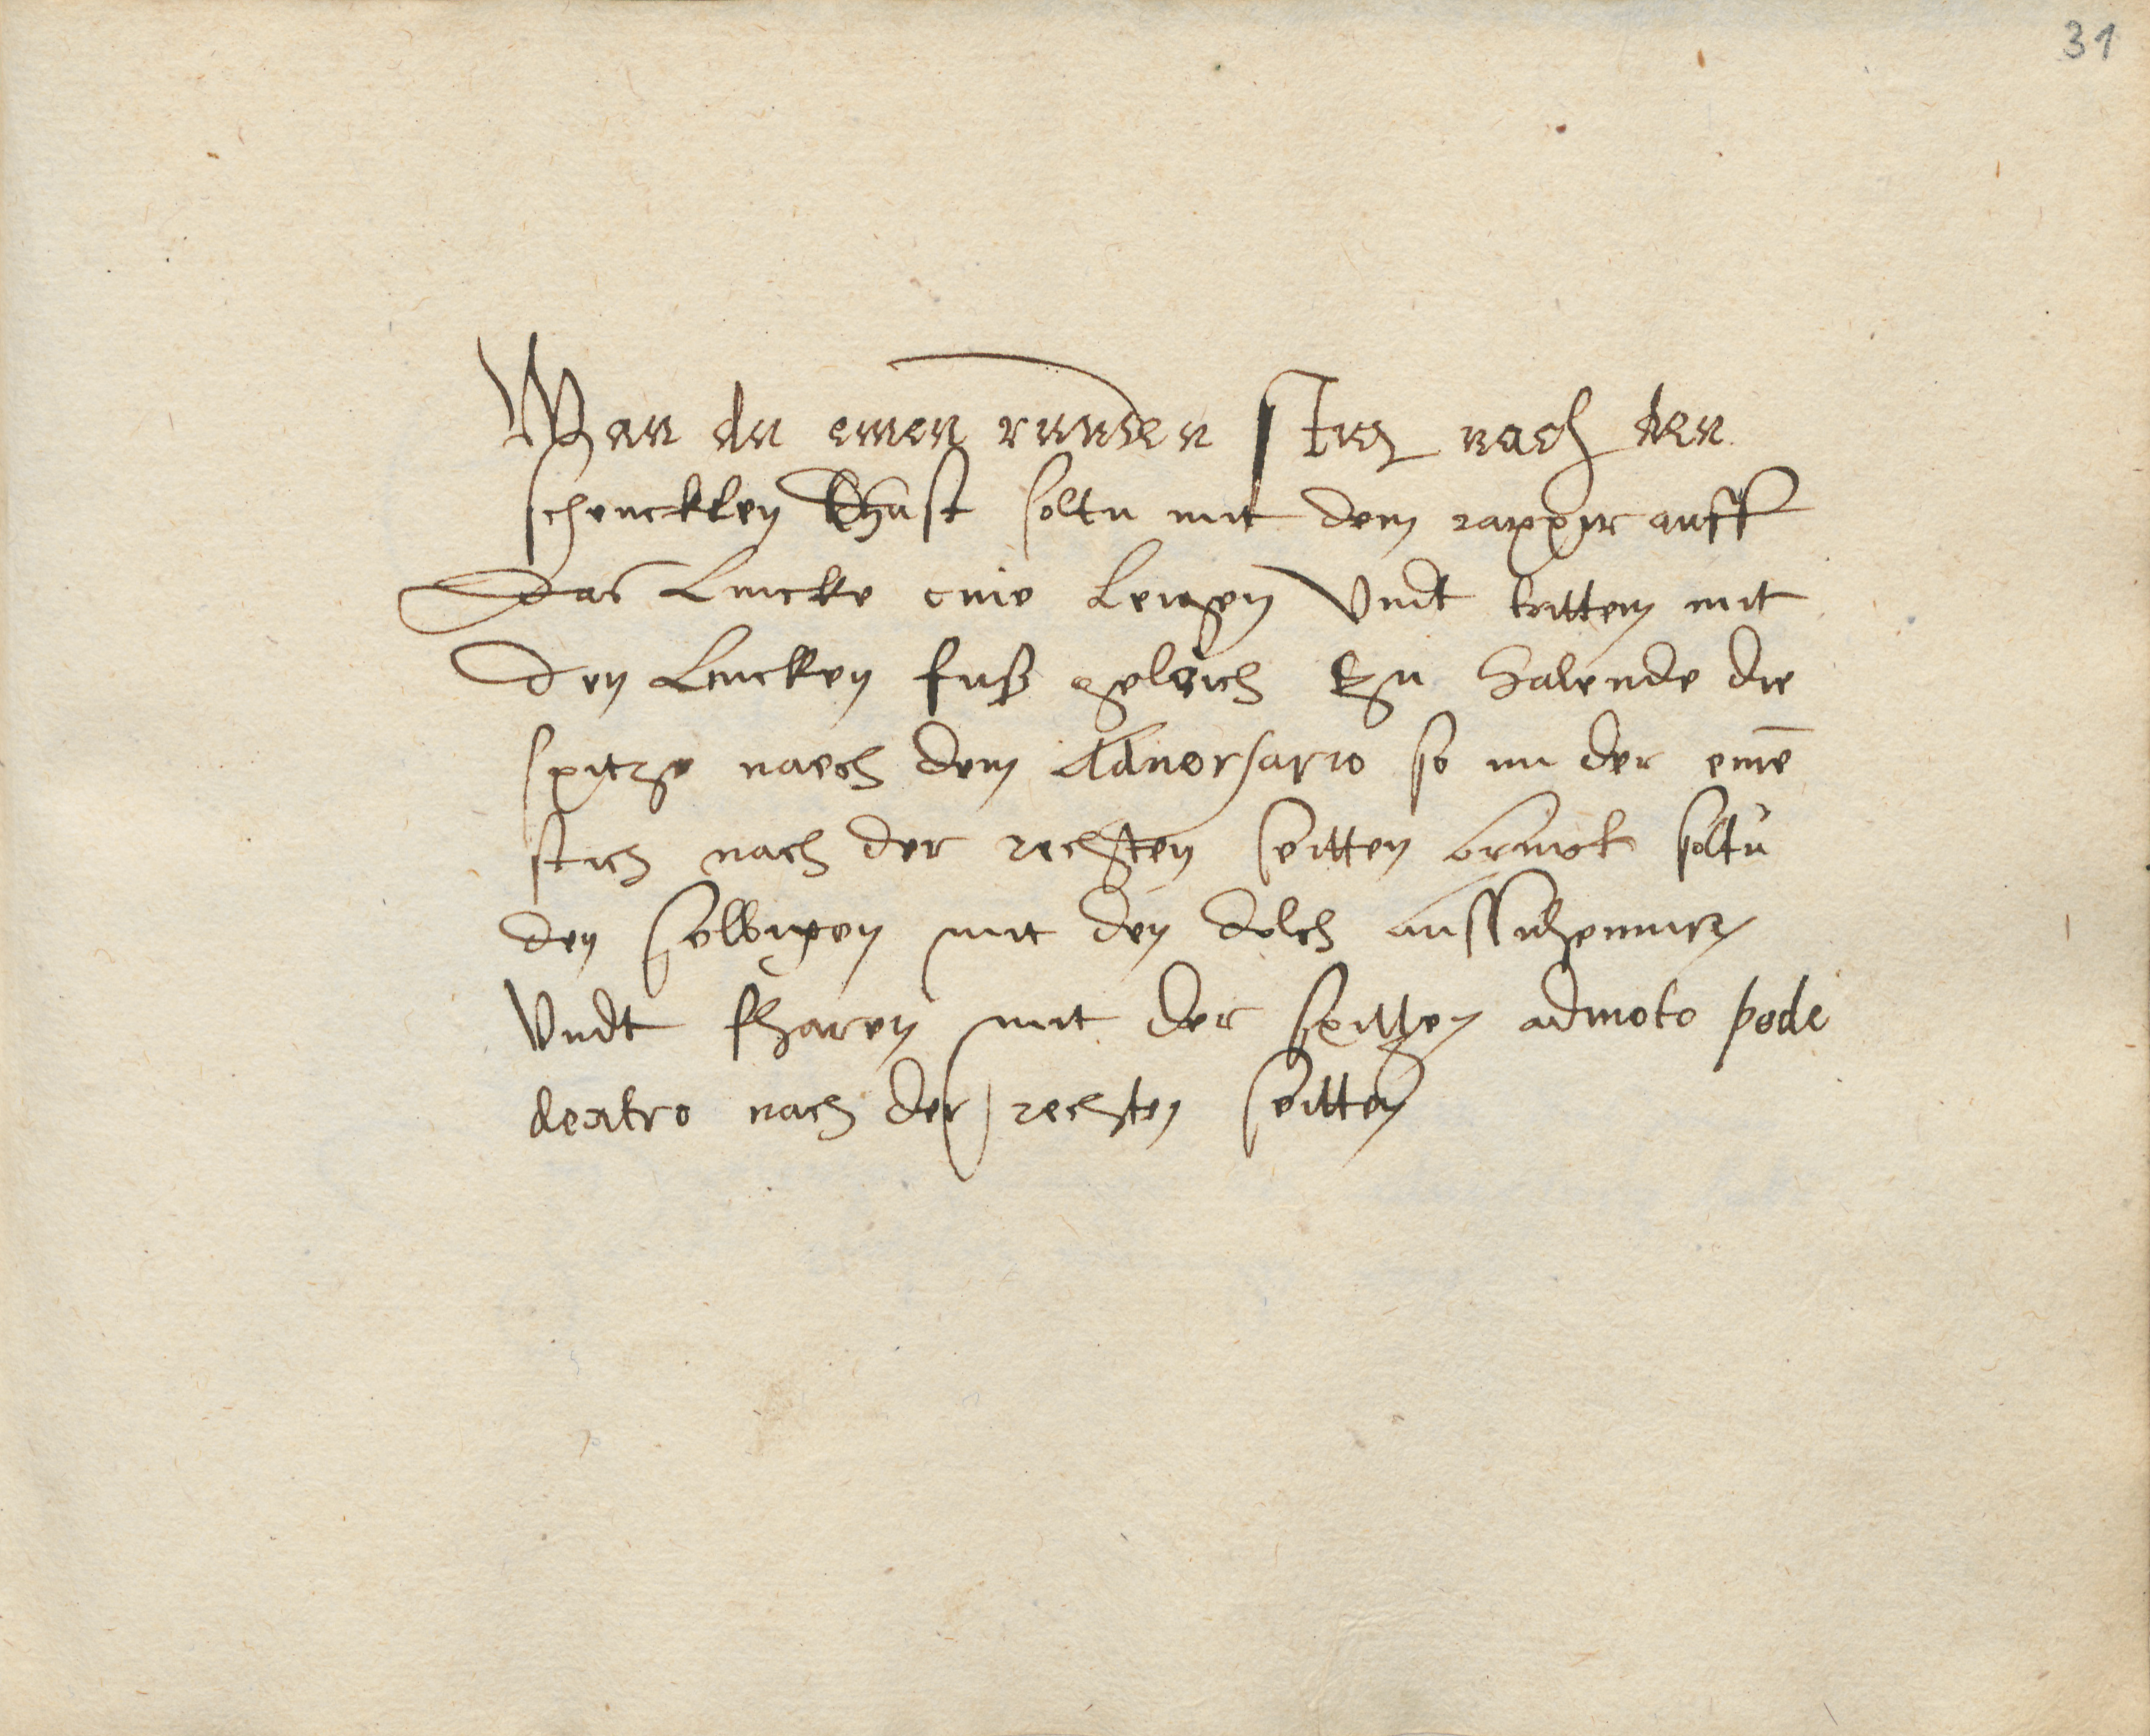 31
Wan du einen runden stich nach den
schenckelen thust soltu mit dem rappir auff
das Lincke cnie Leigen Vndt tritten mit
den Lincken fuß geleich zu halende die
spitze naech dem Aduersario so im der eine͂
stich nach der rechsten seitten brinckt soltu
den selbigen mit den dolch
Vndt fharen mit der spitzen admoto pede
dextro nach der rechsten seitten